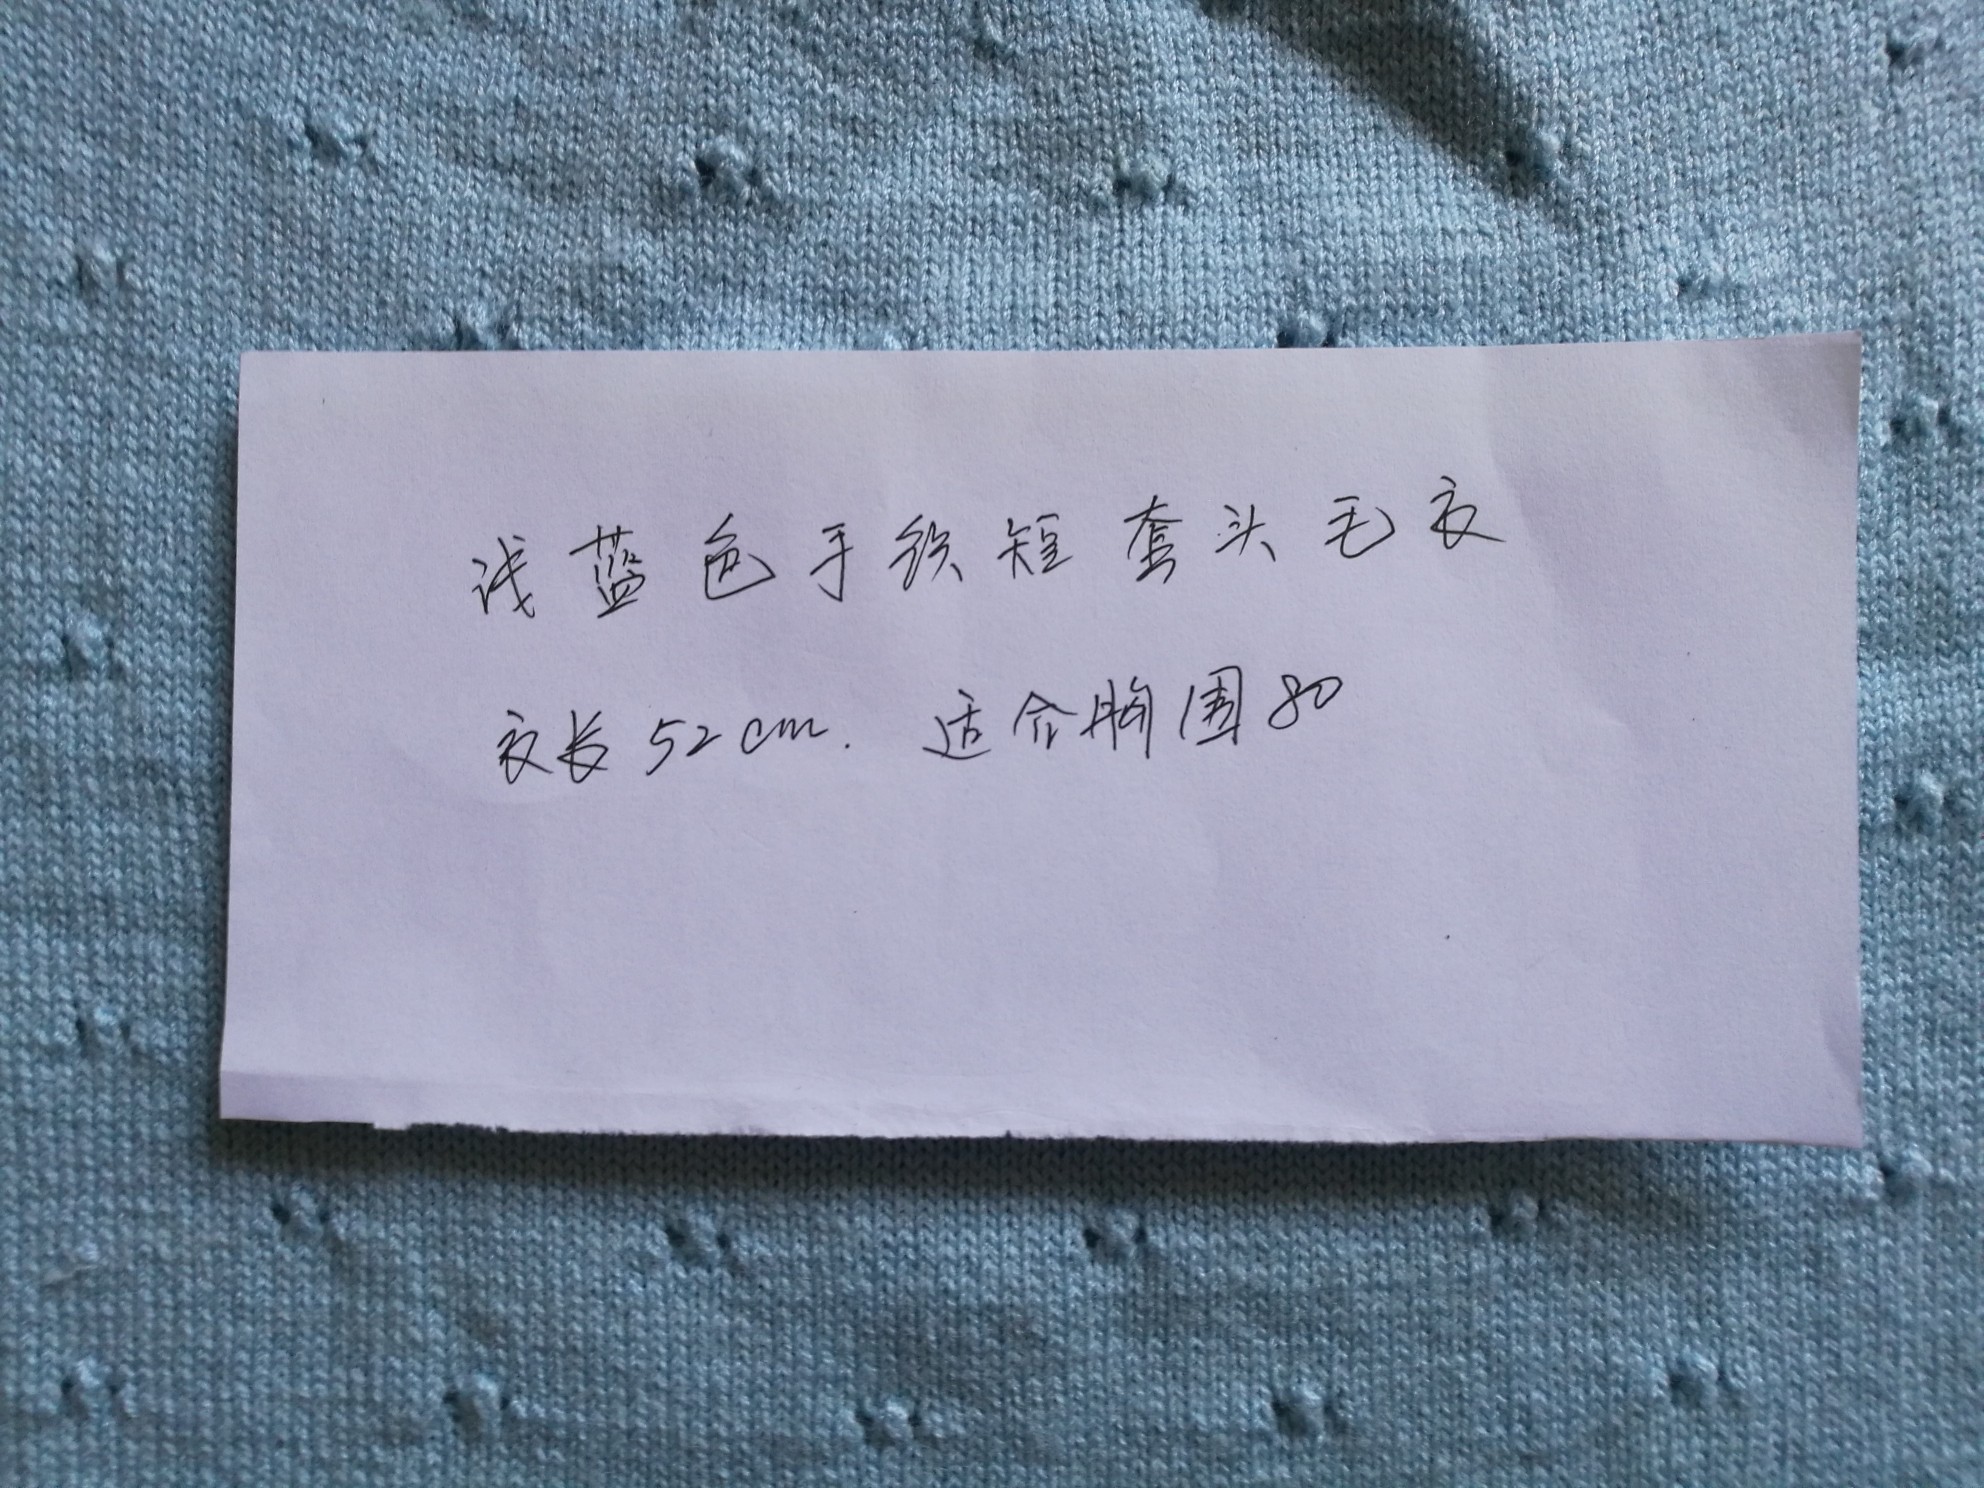 浅蓝色手织短套头毛衣
衣长52cm. 适合胸围80